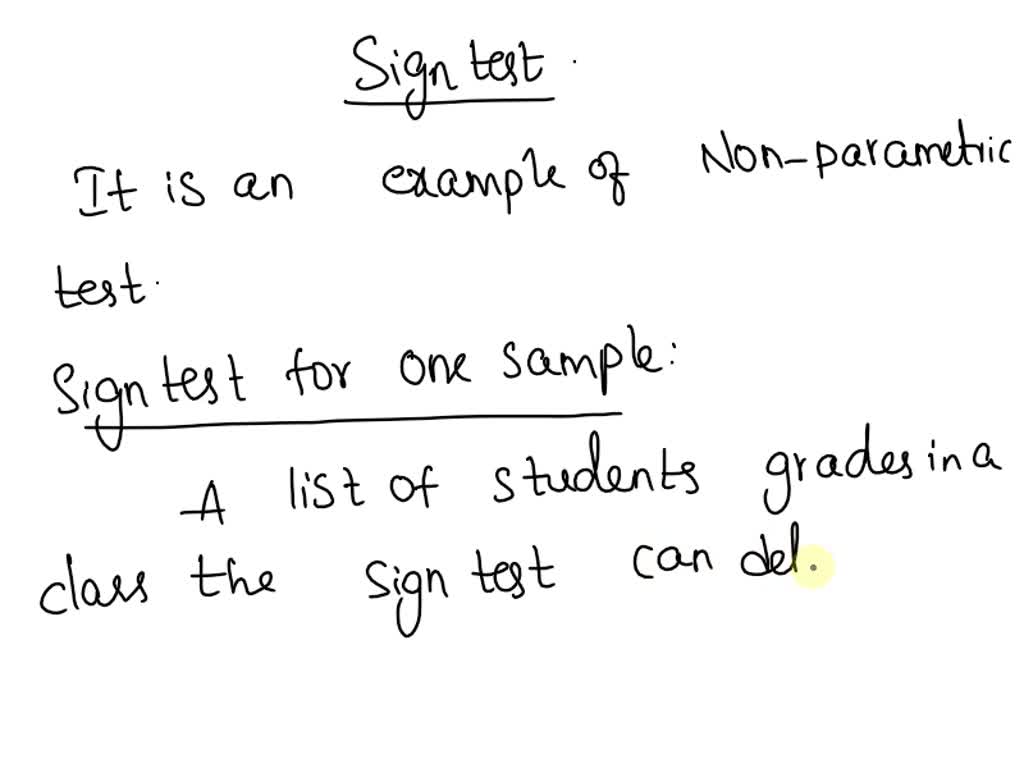 Sign test.
It is an example of Non-parametric
test.
Sign test for one sample:
A list of students grades in a
class the sign test can del.